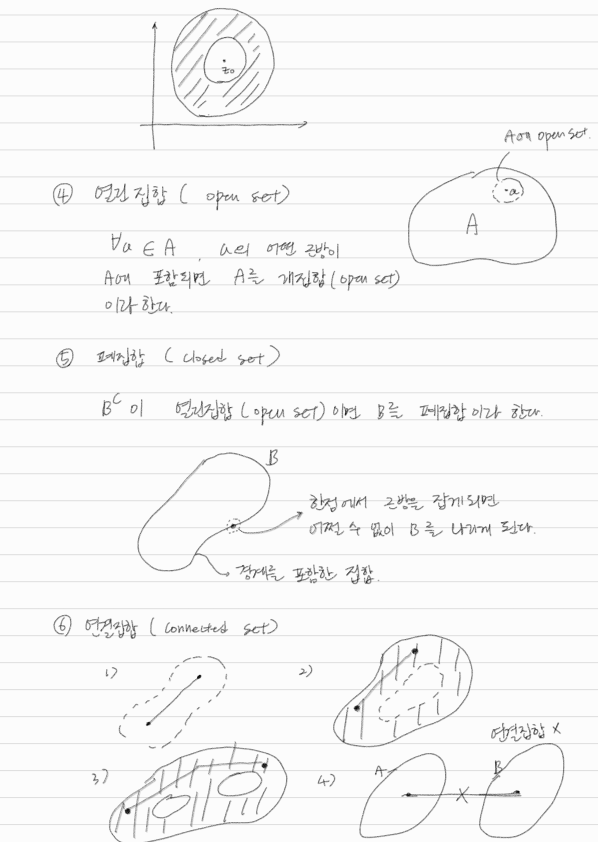 z₀
A에 open set.
④ 열린집합 ( open set)
a
A
∀a ∈ A , a의 어떤 근방이
A에 포함되면 A를 개집합(open set)
이라 한다.
⑤ 폐집합 ( closed set)
Bᶜ이 열린집합(open set)이면 B를 폐집합이라 한다.
B
한점에서 근방을 잡게되면
어쩔 수 없이 B를 나가게 된다.
경계를 포함한 집합.
⑥ 연결집합 ( connected set)
1)
2)
연결집합 X
3)
4)
A
X
B